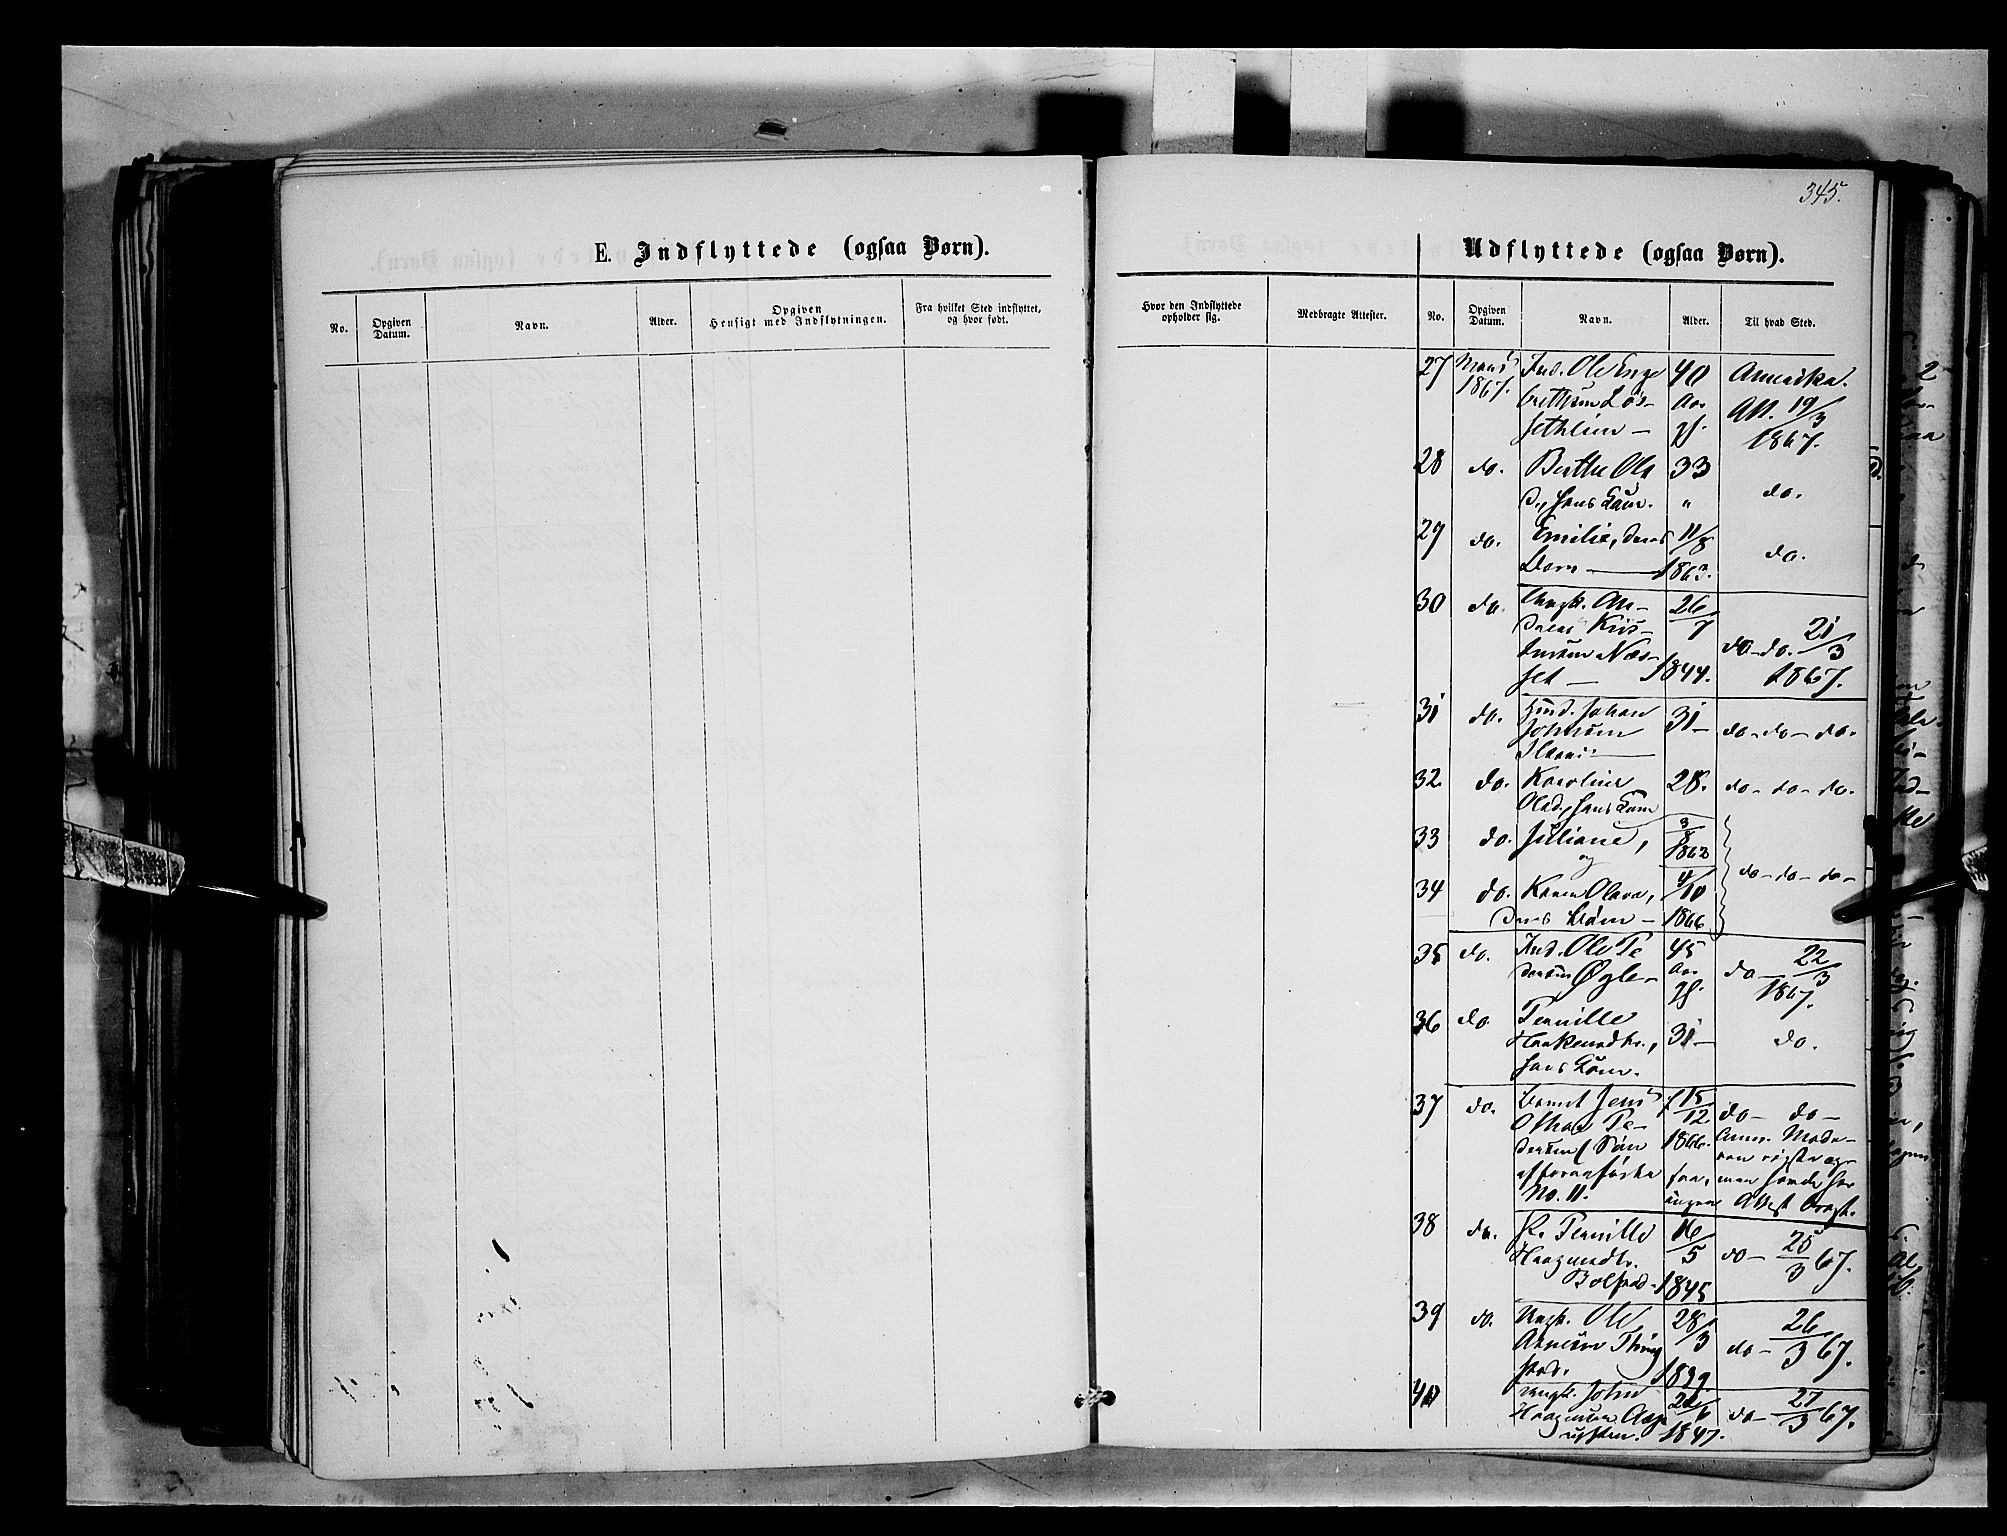 345.
E. Indflyttede (ogsaa Børn).
Udflyttede (ogsaa Børn).
No.
Opgiven Datum.
Navn.
Alder.
Opgiven Hensigt med Indflytningen.
Fra hvilket Sted indflyttet, og hvor født.
Hvor den Indflyttede opholder sig.
Medbragte Attester.
No.
Opgiven Datum.
Navn.
Alder.
Til hvad Sted.
27 Marts Ind. Ole Enge 40 Amerika.
1867. Aar Att. 19/3
gl. 1867.
28 do. Berthe Ols 33
D., hans Kone. " do.
29 do. Emilie, deres 11/8
Barn — 1863. do.
30 do. Ungk. An- 26/7
dreas Kris- do-do. 21/3
tensen Næs-
set — 1844. 1867.
31 do. Johan 31- do-do-do.
Johnsen
32 do. Karoline 28. do-do-do.
Olsd., hans Kone
33 do. Juliane, 3/8 1863
og do-do-do-
34 do. Karen Olava, 4/10
deres Børn - 1866
35 do. Ind. Ole Pe 45
dersen Øyle- Aar do- 22/3
gl. 1867.
36 do. Pernille
Haakensdtr., 31- do.
hans Kone.
37 do. Barnet Jens 15/12 do- do-
Othar Pe- 1866. Anm. Mode-
dersen Søn ren
af foranførte
No. 11. Attest
38 do. P. Pernille 16/5
Haagensdtr. do- 25/3 67.
Bolstad- 1845
39 do. Ungk. Ole 28/3
Arnesen Thing do- 26/3 67.
stad. 1839
40 Ungk. John 24/6
Haagensen do- 27/3 67.
1847.